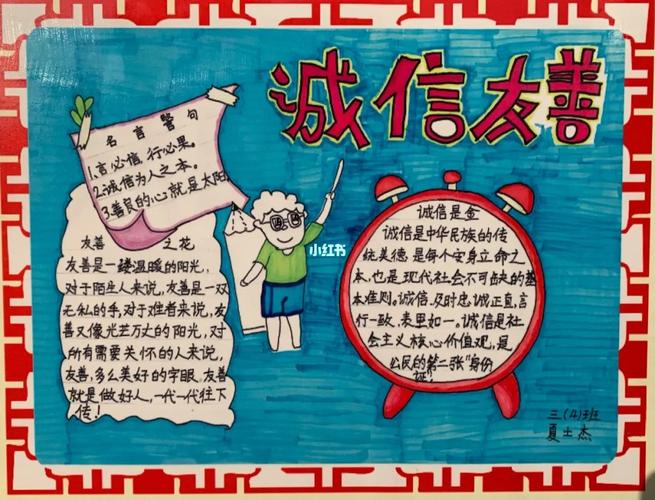 诚信友善
名言警句
1.言必信,行必果。
2.诚信为人之本。
3.善良的心就是太阳
友善之花
友善是一缕温暖的阳光,
对于陌生人来说,友善是一双
无私的手,对于难者来说,友
善又像光芒万丈的阳光,对
所有需要关怀的人来说,
友善,多么美好的字眼,友善
就是做好人,一代一代往下
传!
小红书
诚信是金
诚信是中华民族的传
统美德,是每个安身立命之
本,也是现代社会不可缺的基
本准则。诚信,及时忠诚正直,言
行一致,表里如一。诚信是社
会主义核心价值观,是
公民的第二张"身份
证"
三(4)班
夏士杰